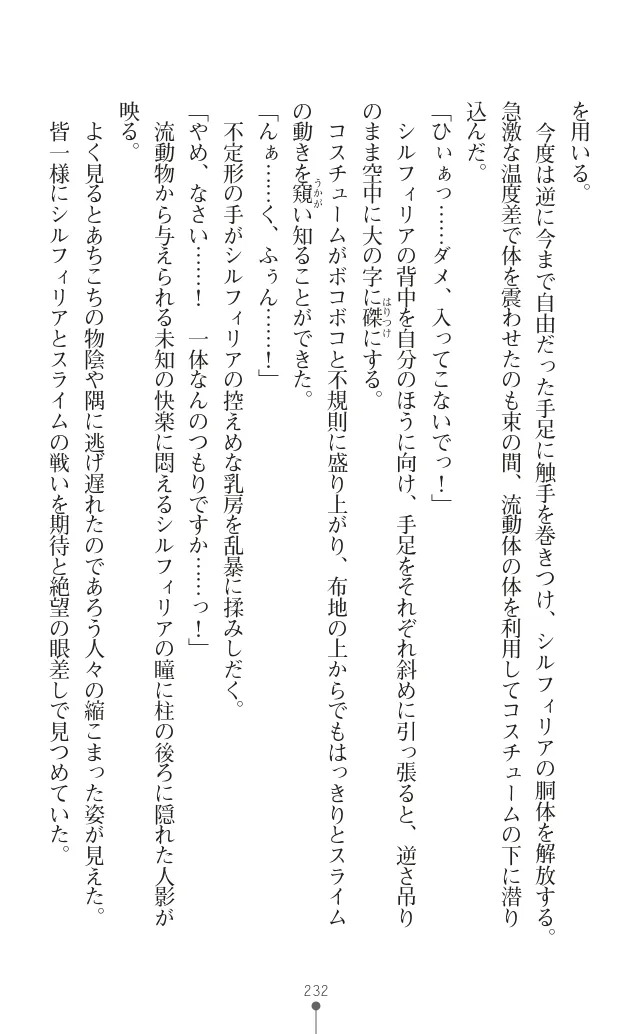 を用いる。
　今度は逆に今まで自由だった手足に触手を巻きつけ、シルフィリアの胴体を解放する。
急激な温度差で体を震わせたのも束の間、流動体の体を利用してコスチュームの下に潜り
込んだ。
「ひぃぁっ……ダメ、入ってこないでっ！」
　シルフィリアの背中を自分のほうに向け、手足をそれぞれ斜めに引っ張ると、逆さ吊り
のまま空中に大の字に磔にする。
はりつけ
　コスチュームがボコボコと不規則に盛り上がり、布地の上からでもはっきりとスライム
の動きを窺い知ることができた。
うかが
「んぁ……く、ふぅん……！」
　不定形の手がシルフィリアの控えめな乳房を乱暴に揉みしだく。
「やめ、なさい……！　一体なんのつもりですか……っ！」
　流動物から与えられる未知の快楽に悶えるシルフィリアの瞳に柱の後ろに隠れた人影が
映る。
　よく見るとあちこちの物陰や隅に逃げ遅れたのであろう人々の縮こまった姿が見えた。
　皆一様にシルフィリアとスライムの戦いを期待と絶望の眼差しで見つめていた。
232